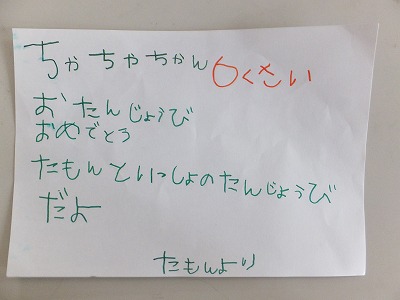 ちゃちゃちゃん 6くさい
おたんじょうび
おめでとう
たもんといっしょのたんじょうび
だよ
たもんより